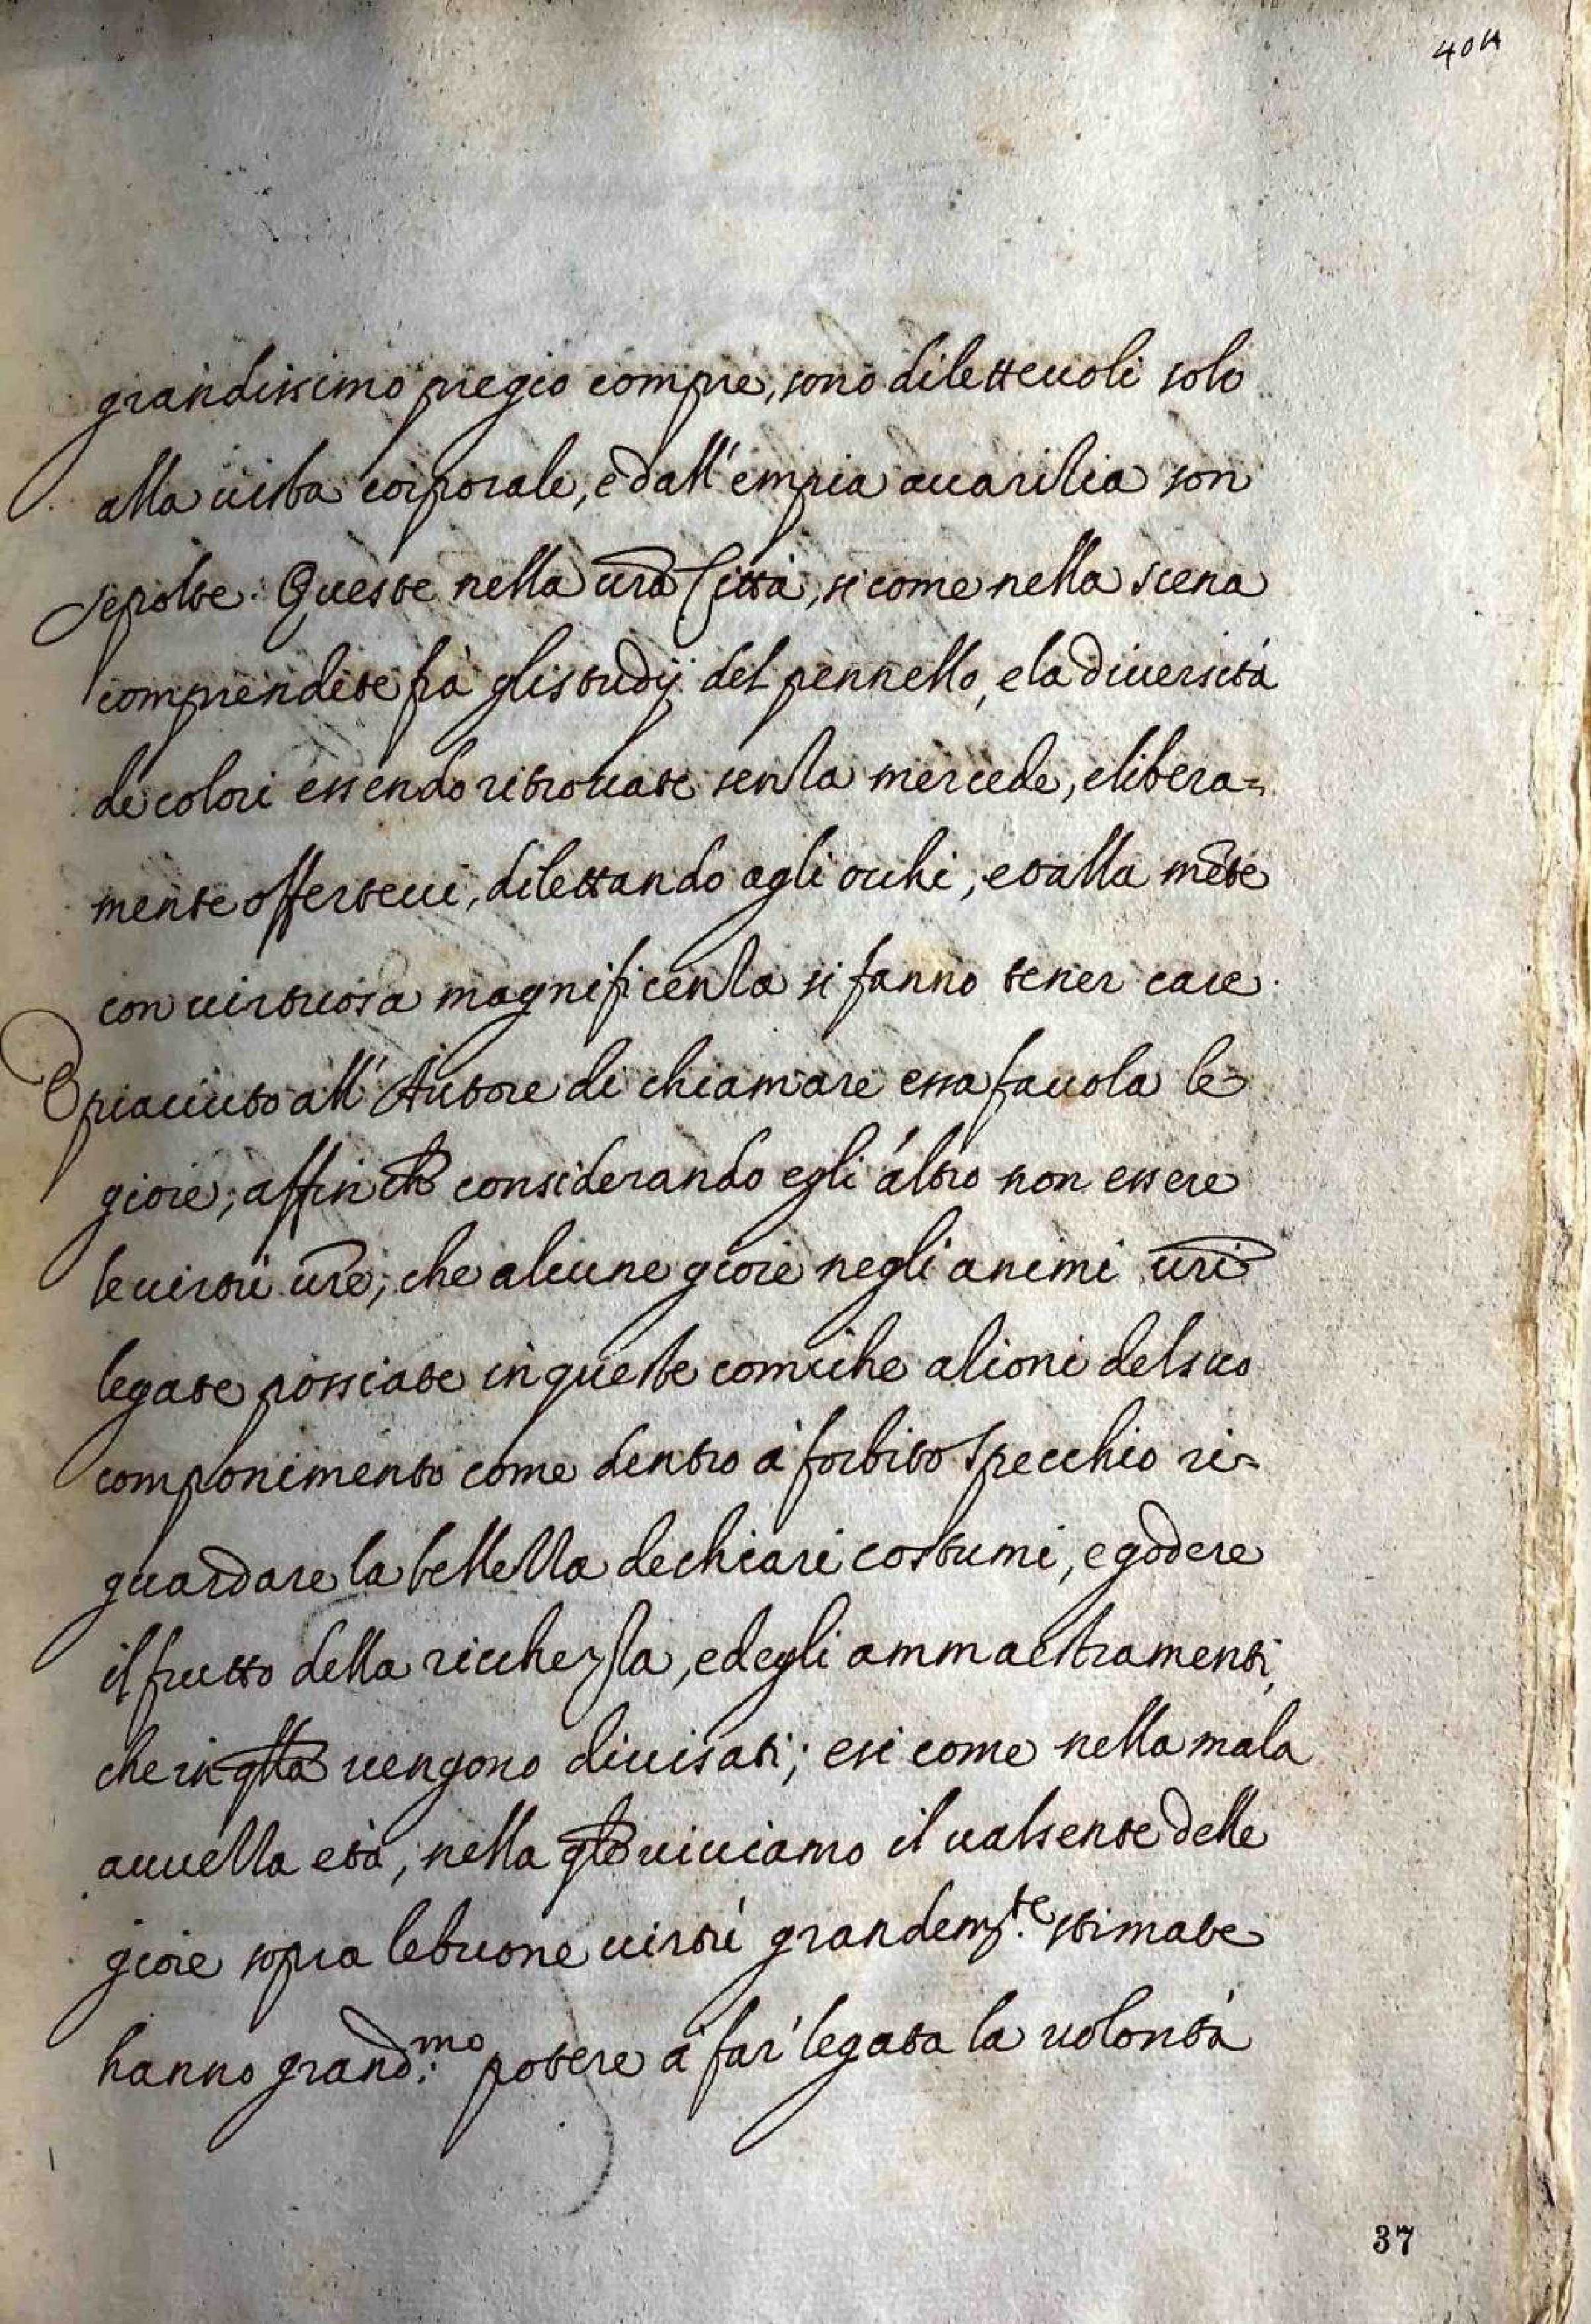 404
grandissimo pregio compre, sono diletteuoli solo
alla uista corporale, e dall'empia auaritia son
sepolte. Queste nella urã Città, si come nella scena
comprendete frà gli studij del pennello, e la diuersità
de colori essendo ritrouate senza mercede, e libera=
mente offerteui, dilettando agli occhi, et alla mẽte
con uirtuosa magnificenza si fanno tener care.
È piaciuto all'Autore di chiamare essa fauola le
gioie; affin che considerando egli altro non essere
le uirtù urẽ, che alcune gioie negli animi urĩ
legate possiate in queste comiche azioni del suo
componimento come dentro à forbito specchio ri=
guardare la bellezza de chiari costumi, e godere
il frutto della ricchezza, e degli ammaestramenti,
che in qlla uengono diuisati; e si come nella mala
auuezza età, nella qle uiuiamo il ualsente delle
gioie sopra le buone uirtù grandem.te stimate
hanno grand.mo potere à far legata la uolontà
37